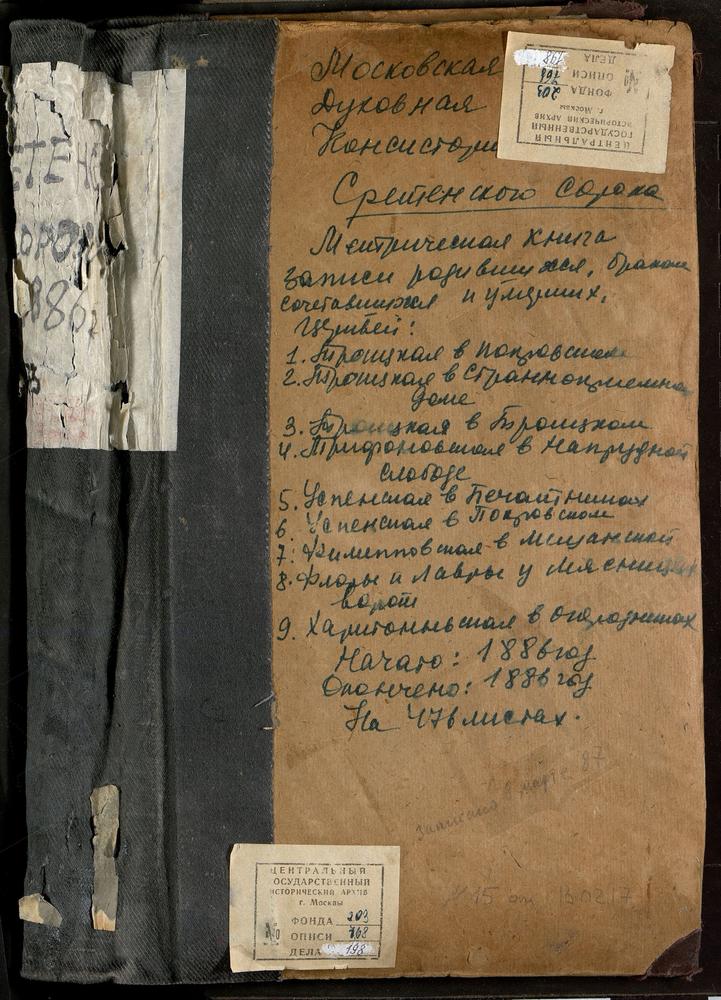 Московская
Духовная
Консистория
Сретенского Сорока
Метрическая Книга
записи родившихся, браком
сочетавшихся и умерших,
Церквей:
1. Троицкая в Покровском
2. Троицкая в Странноприемном
Доме
3. Троицкая в Троицком
4. Трифоновская в Напрудной
слободе
5. Успенская в Печатниках
6. Успенская в Покровском
7. Филипповская в Мещанской
8. Флоры и Лавры у Мясницких
ворот
9. Харитоньевская в Огородниках
Начато: 1886 год
Окончено: 1886 год
На 476 листах.
записано 8 марта 87
ЦЕНТРАЛЬНЫЙ
ГОСУДАРСТВЕННЫЙ
ИСТОРИЧЕСКИЙ АРХИВ
г. Москвы
ФОНДА 203
№ ОПИСИ 768
ДЕЛА 198
ЦЕНТРАЛЬНЫЙ
ОСУДАРСТВЕННЫЙ
ИСТОРИЧЕСКИЙ АРХИВ
г. Москвы
ФОНДА 203
№ ОПИСИ 768
ДЕЛА 198
ОРО
886г